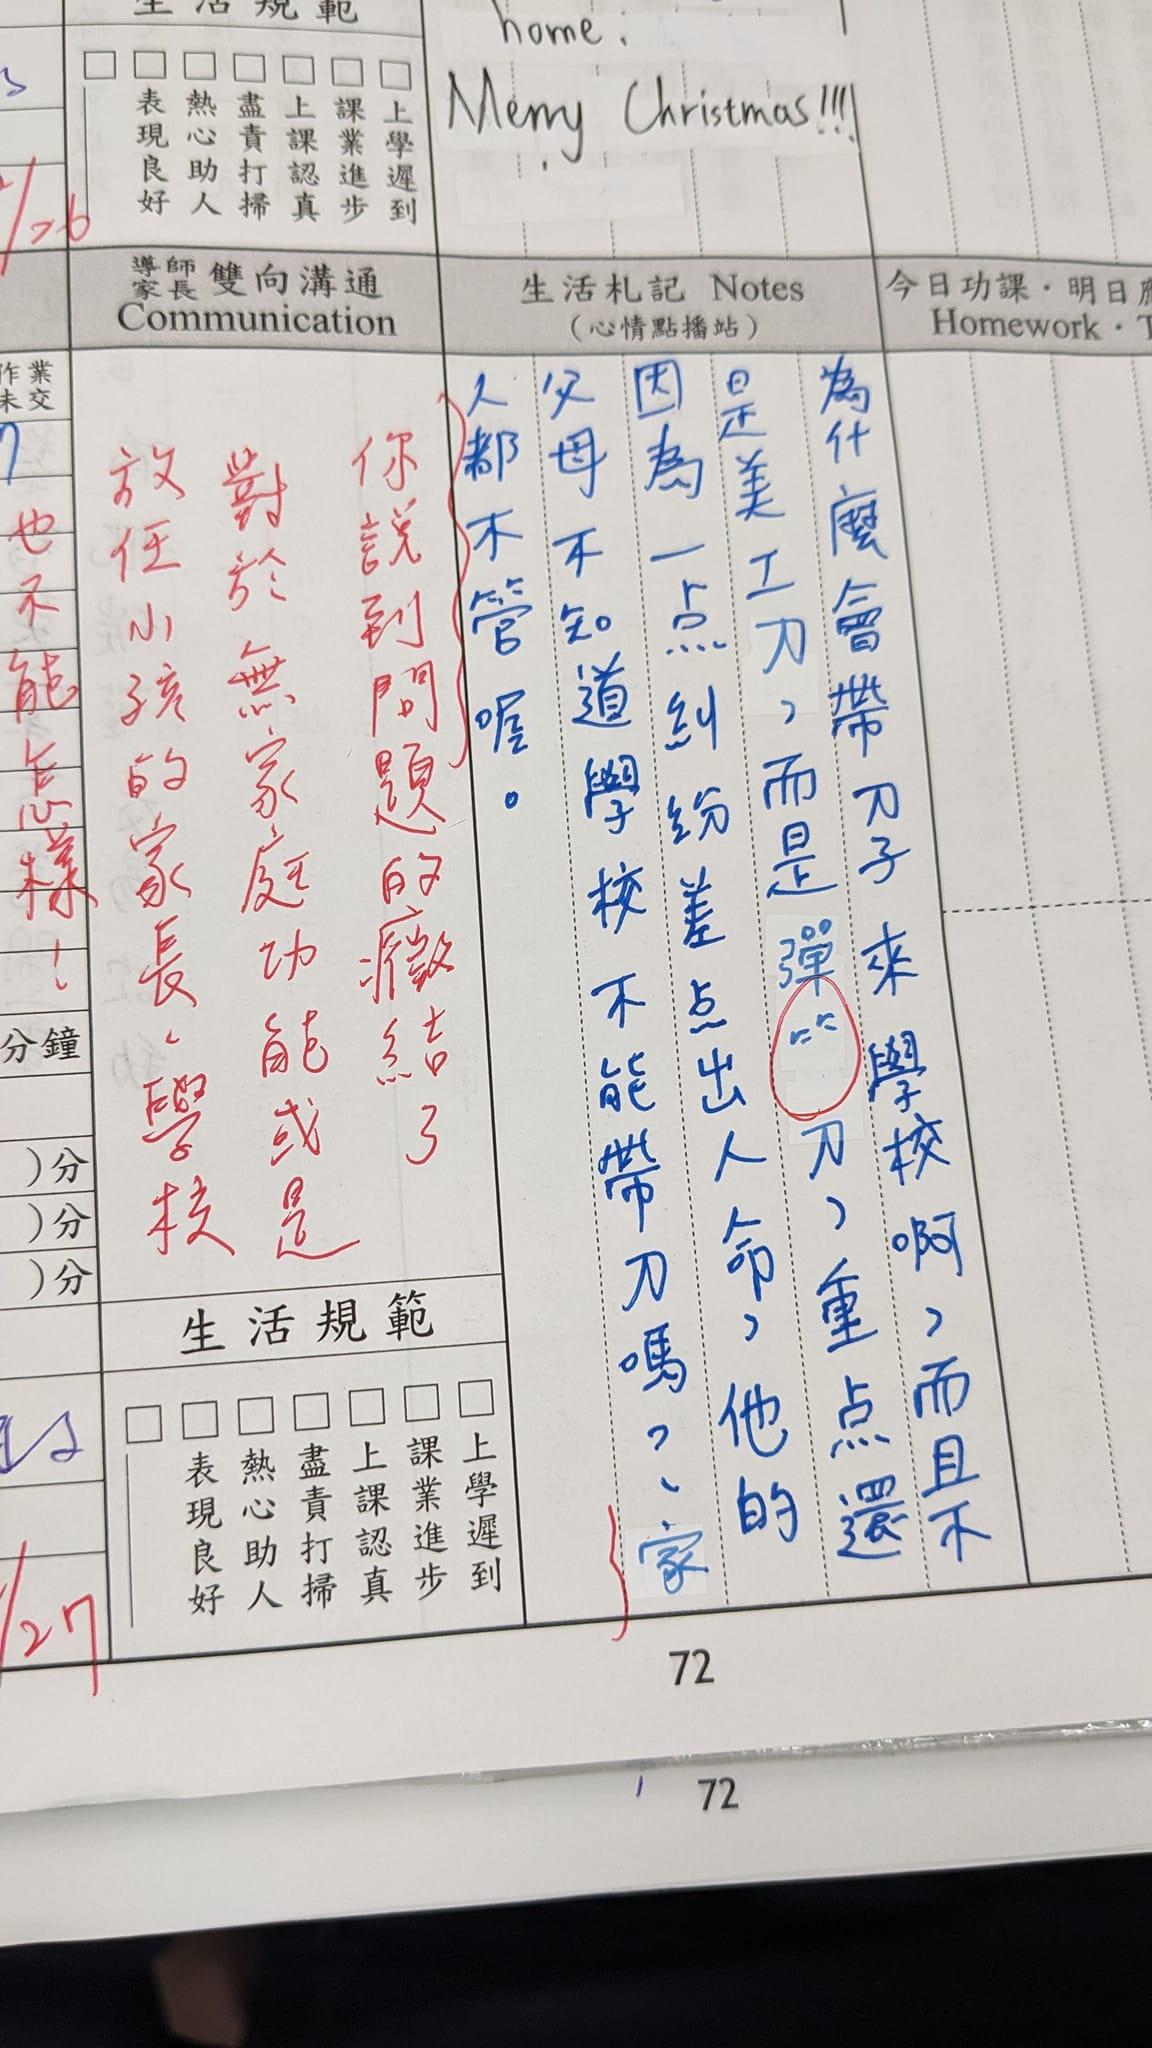 生活規範
表現良好
熱心助人
盡責打掃
上課認真
課業進步
上學遲到
home.
Merry Christmas!!!
/26
導師家長雙向溝通
Communication
生活札記 Notes
(心情點播站)
今日功課·明日
Homework·T
為什麼會帶刀子來學校啊,而且不
是美工刀,而是彈⺮刀,重点還
因為一点糾紛差点出人命,他的
父母不知道學校不能帶刀嗎?、家
人都不管喔。
你說到問題的癥結了
對於無家庭功能或是
放任小孩的家長、學校
也不能怎樣!
作業
未交
分鐘
)分
)分
)分
/27
生活規範
表現良好
熱心助人
盡責打掃
上課認真
課業進步
上學遲到
72
72